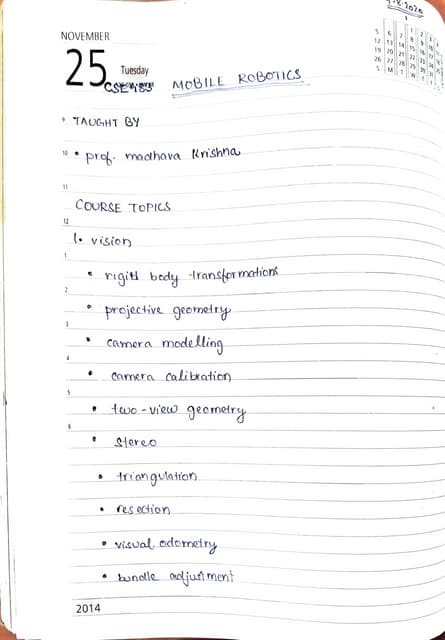 NOVEMBER
25 Tuesday
MOBILE ROBOTICS
9 TAUGHT BY
10 • prof. madhava Krishna
11
COURSE TOPICS
12
1. vision
1
• rigid body transformations
2
• projective geometry
3
• camera modelling
4
• camera calibration
5
• two-view geometry
6
• stereo
• triangulation
• resection
• visual odometry
• bundle adjustment
2014